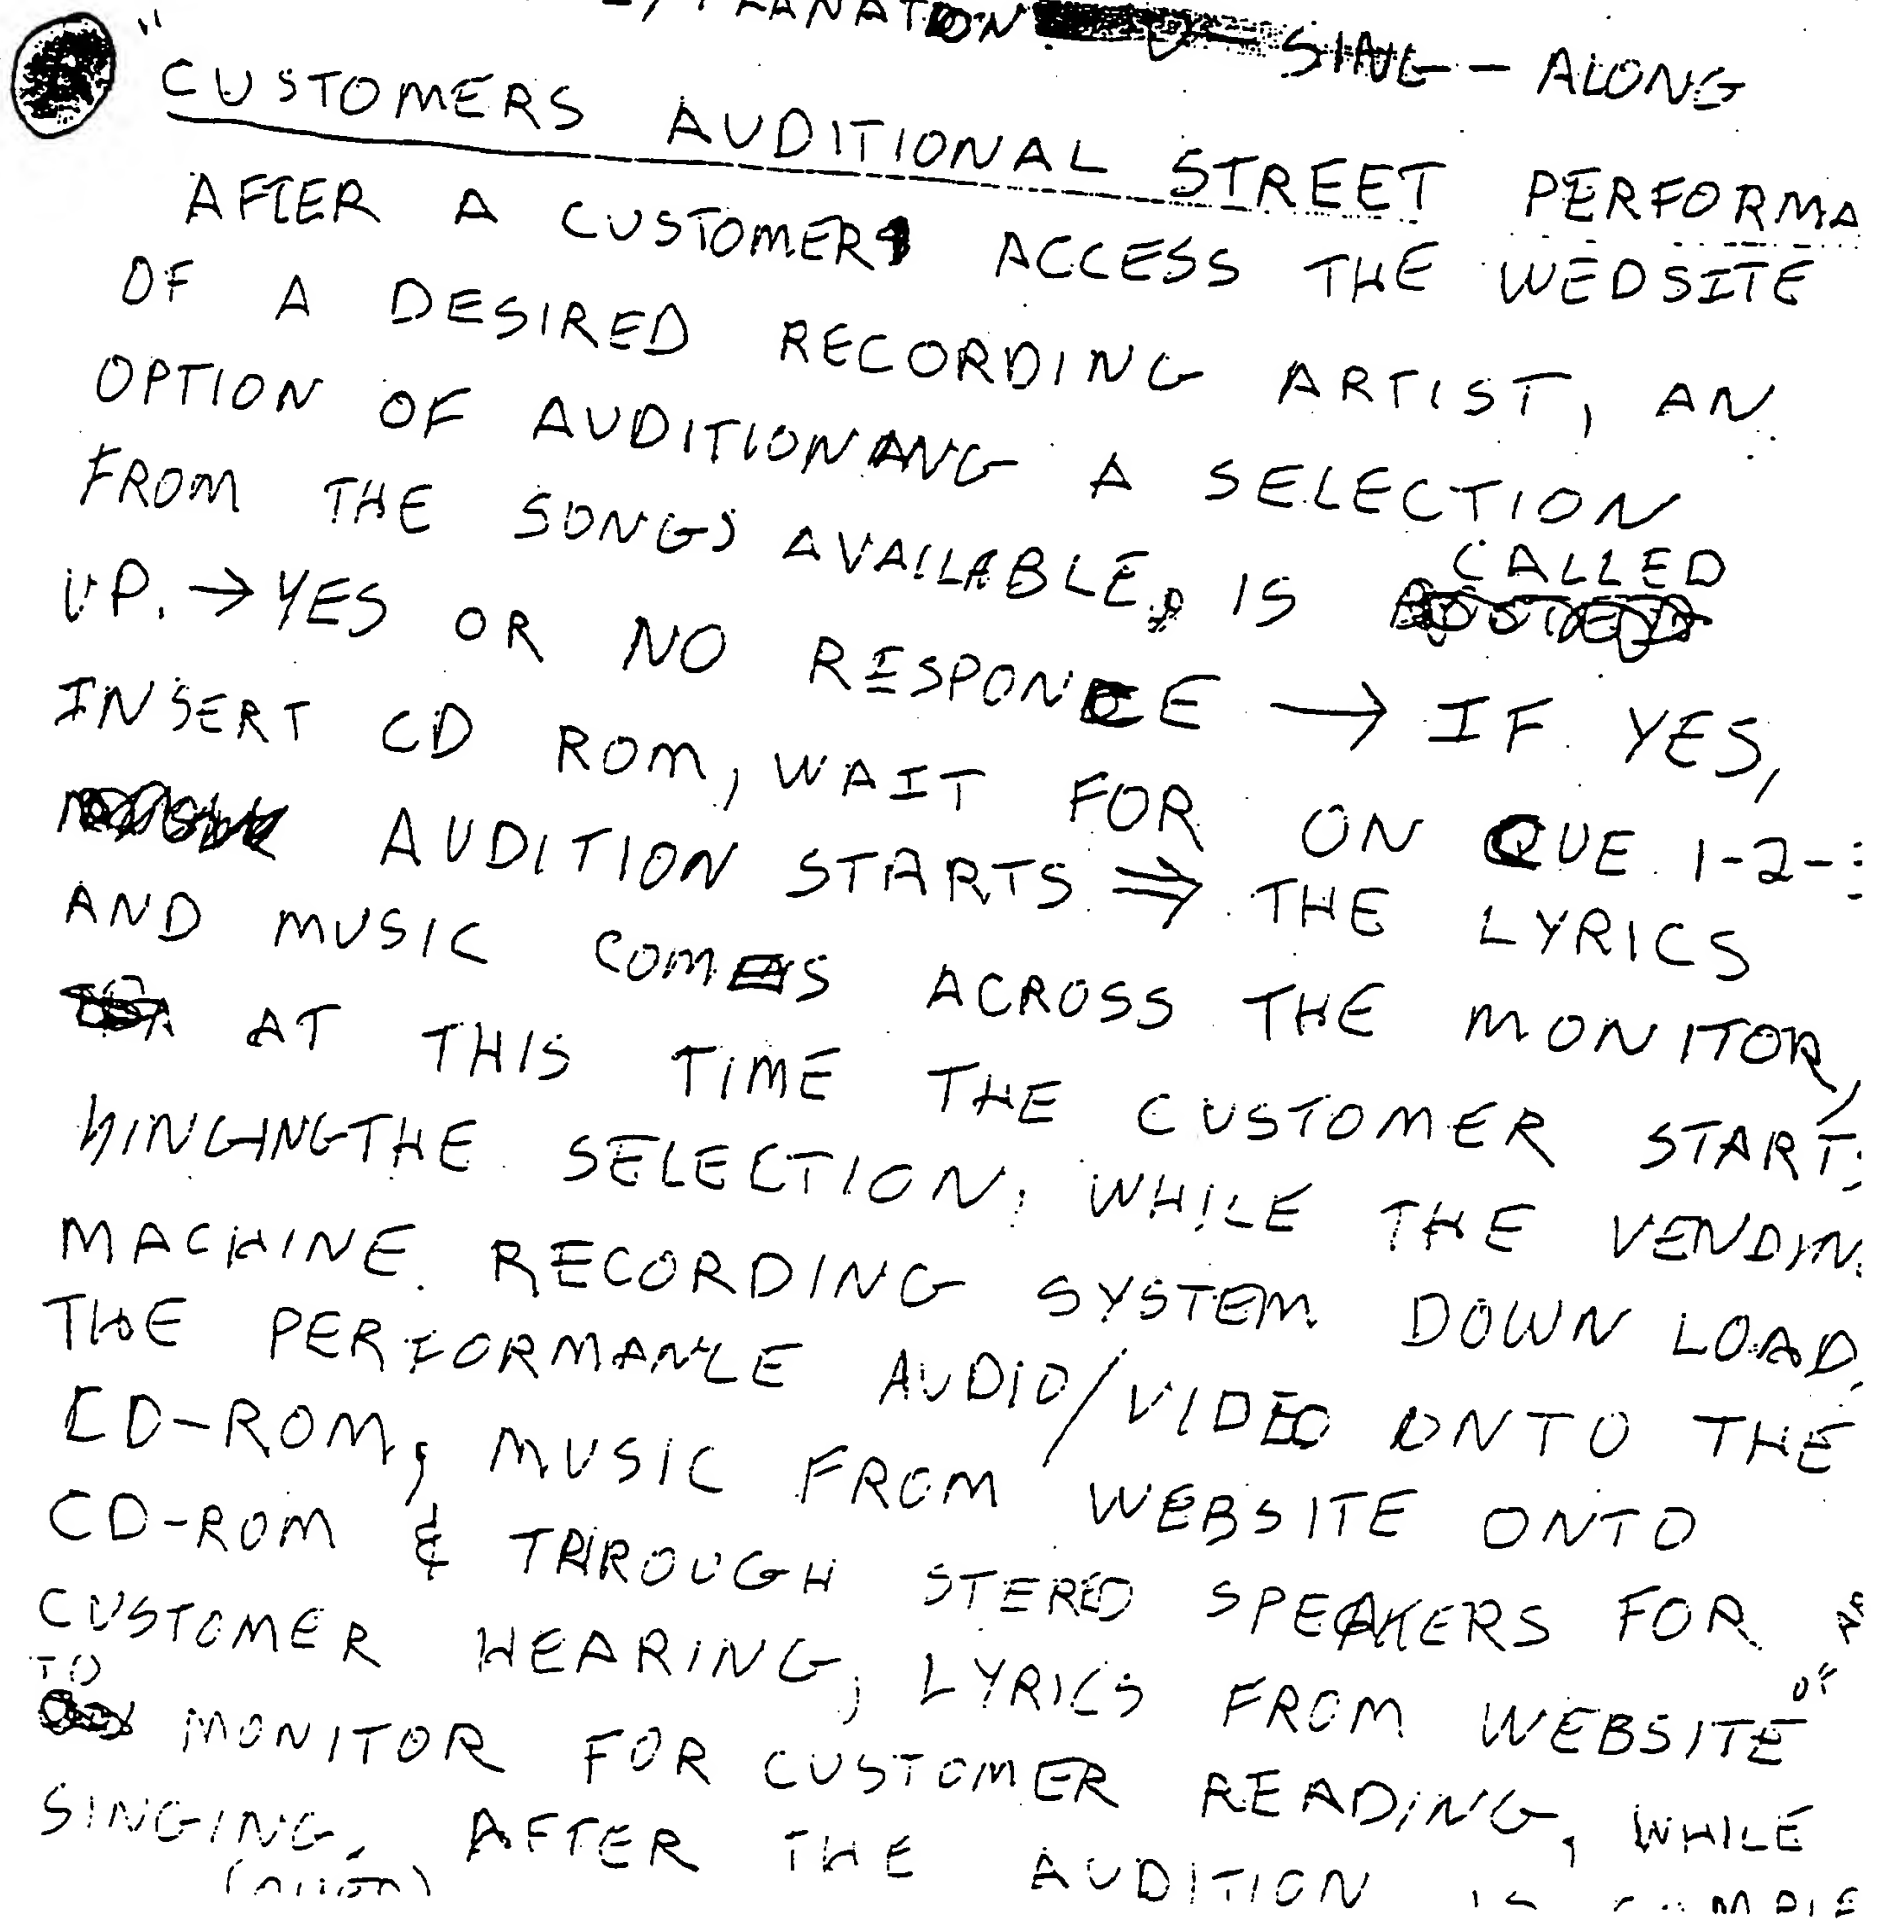 SING-ALONG
"CUSTOMERS AUDITIONAL STREET PERFORMA
AFTER A CUSTOMER ACCESS THE WEDSITE
OF A DESIRED RECORDING ARTIST, AN
OPTION OF AUDITIONANG A SELECTION
FROM THE SONGS AVAILABLE, IS CALLED
UP. → YES OR NO RESPONCE → IF YES,
INSERT CD ROM, WAIT FOR ON QUE 1-2-
AUDITION STARTS ⇒ THE LYRICS
AND MUSIC COMES ACROSS THE MONITOR,
AT THIS TIME THE CUSTOMER STARTS
SINGING THE SELECTION, WHILE THE VENDIN
MACHINE RECORDING SYSTEM DOWN LOAD
THE PERFORMANCE AUDIO/VIDEO ONTO THE
CD-ROM, MUSIC FROM WEBSITE ONTO
CD-ROM & THROUGH STEREO SPEAKERS FOR
CUSTOMER HEARING, LYRICS FROM WEBSITE
TO MONITOR FOR CUSTOMER READING, WHILE
SINGING. AFTER THE AUDITION